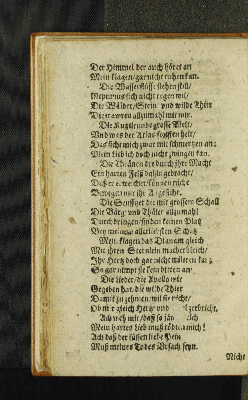 Der Himmel der auch höret an
Mein klagen/gar nicht ruhen kan.
Die Wasserflüsse stehen still/
Neptunus sich nicht regen wil/
Die Wälder/Stein und wilde Thier
Die trawren allzumahl mit mir.
Die Kugelrunde grosse Welt/
Und was der Atlas
Das sicht mich zwar mit schmertzen an;
Mein Lieb ich doch nicht zwingen kan.
Die Thränen die durch ihre Macht
Ein harten Felß dahin gebracht/
Daß er erweichet/können nicht
Bewegen nur ihr Angesicht.
Die Seufftzer die mit grossem Schall
Die Berg und Thäler allzumahl
Durchdringen/finden keinen Platz
Bey meinem allerliebsten Schatz.
Mein klagen das Diamant gleich
Mit ihren Stetn sein macherbleich/
Ihr Hertz doch gar nicht mildern kan;
So gar nimpt sie kein bitten an.
Die Lieder/die Apollo mir
Gegeben hat/die wilde Thier
Damit zu zehmen/wil sie nicht/
Ob mir gleich Hertz und zerbricht.
Ach weh mir/daß so
Mein hartes Lieb muß tödten mich!
Ach daß der süssen Liebe Pein
Muß meines Todes Ursach seyn.
Nicht